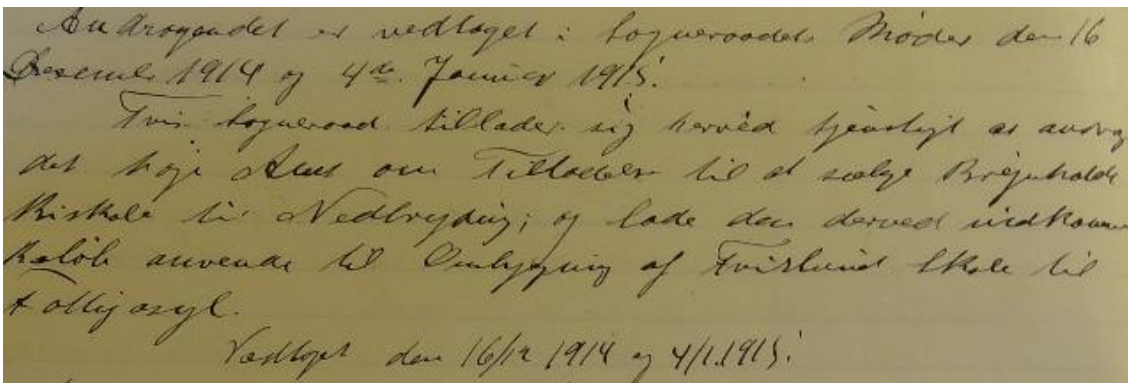 Andragendet er vedtaget i Sogneraadets Møder den 16
Desemb. 1914 og 4de Januar 1915.
Tvis Sogneraad tillader sig herved tjenstligt at andrag
det høje Amt om Tilladelse til at sælge Bregnholdt
Biskole til Nedbrydning; og lade den derved indkomne
Beløb anvende til Ombygning af Tvislund Skole til
Fattigasyl.
Vedtaget den 16/12 1914 og 4/1.1915.